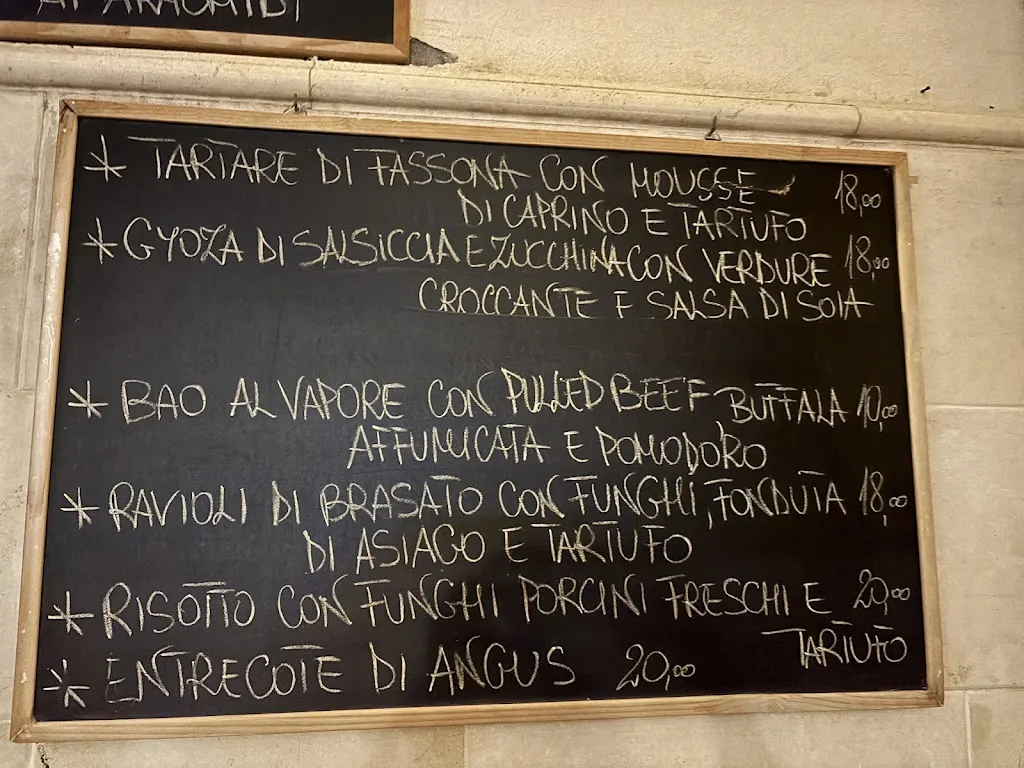 AI ARACHIDI
* TARTARE DI FASSONA CON MOUSSE 18,00
DI CAPRINO E TARTUFO
* GYOZA DI SALSICCIA E ZUCCHINA CON VERDURE 18,00
CROCCANTE E SALSA DI SOIA
* BAO AL VAPORE CON PULLED BEEF BUFFALA 10,00
AFFUMICATA E POMODORO
* RAVIOLI DI BRASATO CON FUNGHI, FONDUTA 18,00
DI ASIAGO E TARTUFO
* RISOTTO CON FUNGHI PORCINI FRESCHI E 20,00
TARTUFO
* ENTRECOTE DI ANGUS 20,00